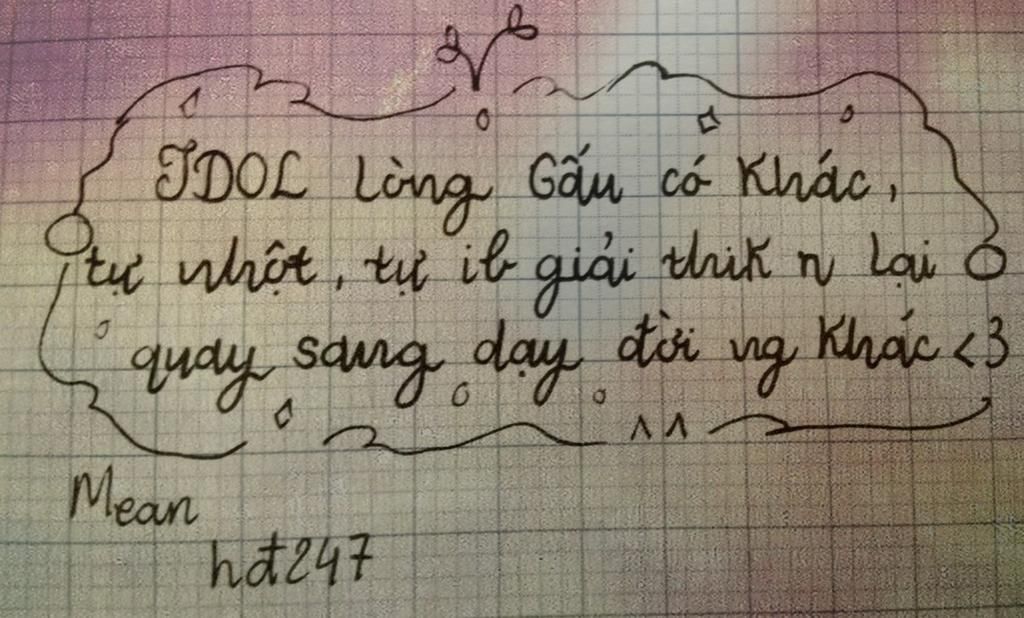 IDOL Lòng Gấu có Khác,
tự nhột, tự ib giải thik n lại
quay sang dạy đời ng Khác <3
^^
Mean
hđ247